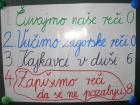 Čuvajmo naše reči 0
2. Vučimo zagorske reči 0
3. Kajkavci v duši 6
4. Zapišimo reči
da se ne pozabiju